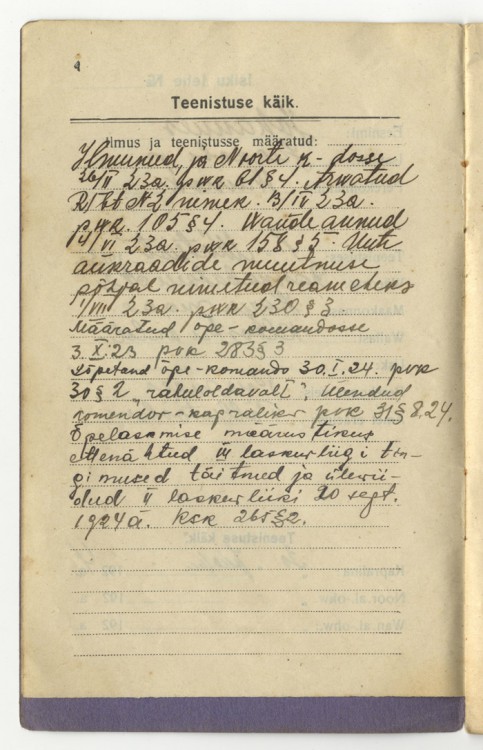 Teenistuse käik.
Ilmus ja teenistusse määratud:
Ilmunud ja Noorte k-dosse
26/II 23a. pvk 61 § 4. Arwatud
nimek. 13/IV 23a.
pvk. 105 § 4. Wande annud
4/VI 23a. pvk 158 § 5. Uute
aukraadide muutmise
põhjal nimetud reameheks
1/VIII 23a. pvk 230 § 3
Määratud õpe-komandosse
3.X.23 pvk 283 § 3
Lõpetand õpe-komando 30.I.24. pvk
30 § 2 "rahuloldavalt", Ülendud
komendor-kapraliks pvk 31 § 8.24.
Õpelaskmise määrustikus
ettenähtud III laskurliigi tin-
gimused täitnud ja üleviidud
II laskurliiki 20 sept.
1924 a. KSK 265 § 2.